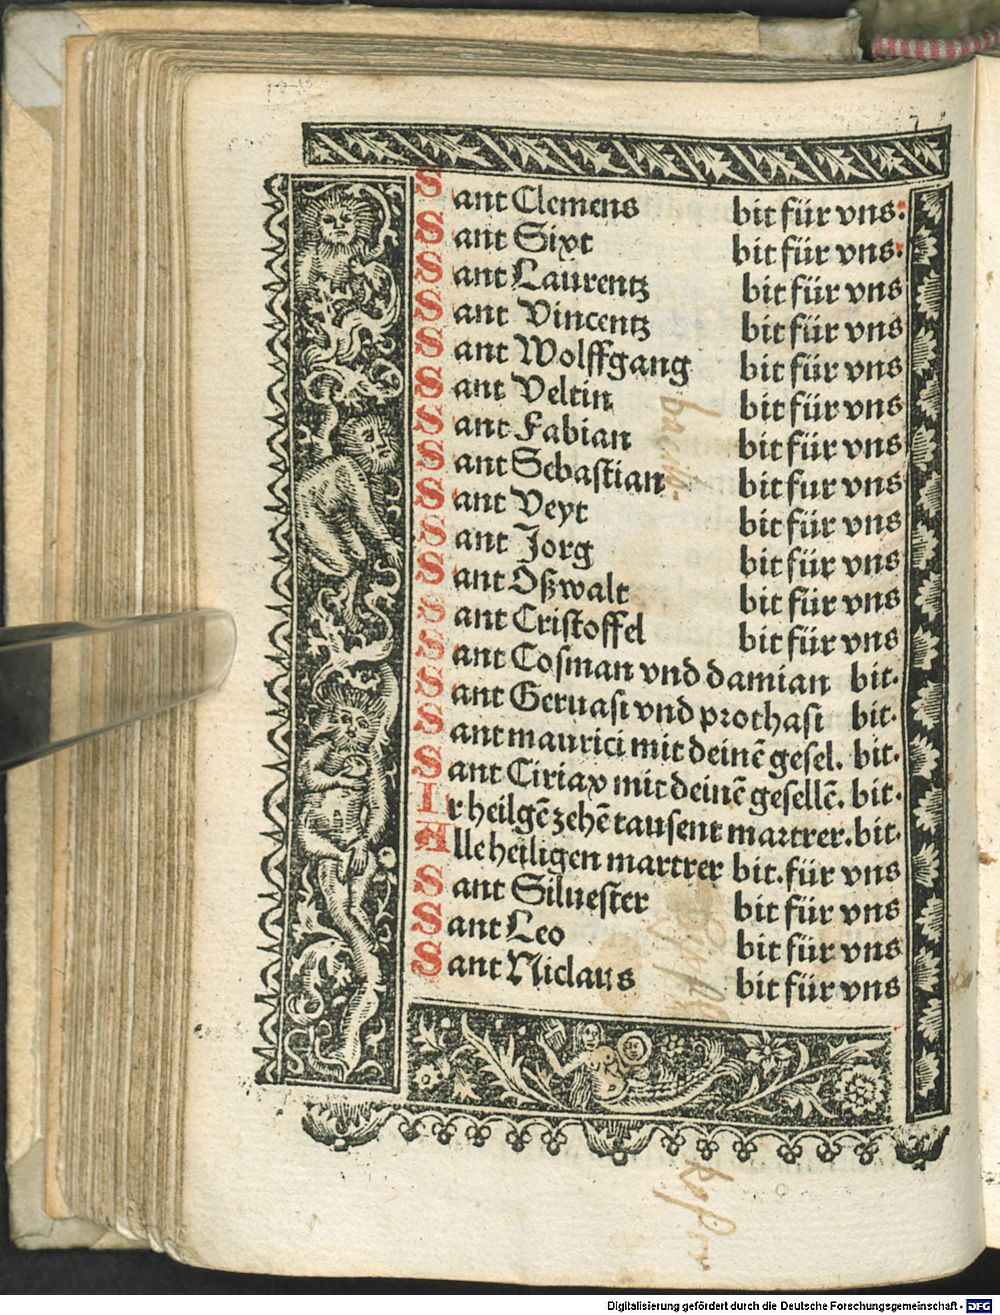 Sant Clemens bit für vns.
Sant Sixt bit für vns.
Sant Laurentz bit für vns
Sant Vincentz bit für vns
Sant Wolffgang bit für vns
Sant Veltin bit für vns
Sant Fabian bit für vns
Sant Sebastian bit fur vns
Sant Veyt bit für vns
Sant Jorg bit für vns
Sant Oßwalt bit für vns
Sant Cristoffel bit für vns
Sant Cosman vnd damian bit.
Sant Geruasi vnd prothasi bit.
Sant maurici mit deinē gesel. bit.
Sant Ciriax mit deinē gesellē. bit.
Ir heilgē zehē tausent martrer. bit.
Alle heiligen martrer bit. für vns
Sant Siluester bit für vns
Sant Leo bit für vns
Sant Niclaus bit für vns
Digitalisierung gefördert durch die Deutsche Forschungsgemeinschaft - DFG